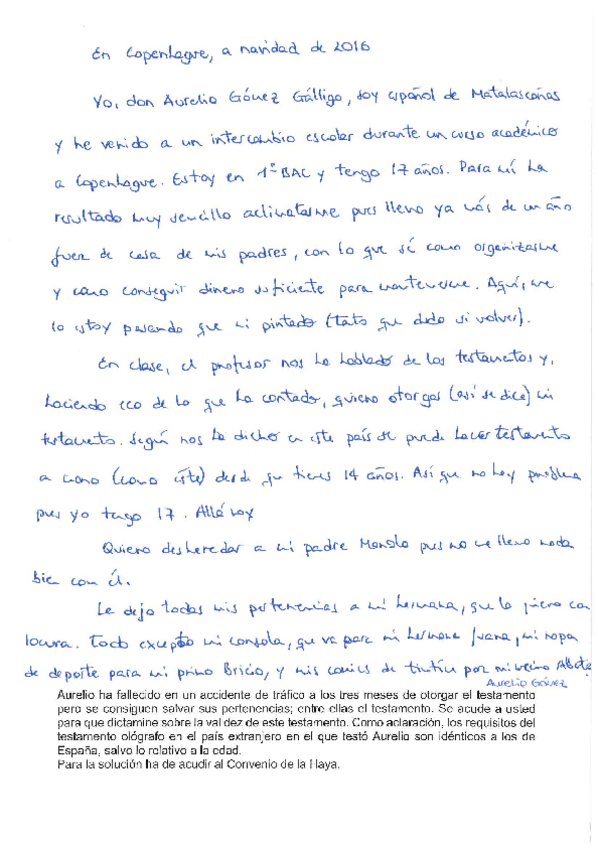 En Copenhague, a navidad de 2016
Yo, don Aurelio Gómez Gálligo, soy español de Matalascañas
y he venido a un intercambio escolar durante un curso académico
a Copenhague. Estoy en 1º BAC y tengo 17 años. Para mí ha
resultado muy sencillo aclimatarme pues llevo ya más de un año
fuera de casa de mis padres, con lo que sé como organizarme
y como conseguir dinero suficiente para mantenerme. Aquí, me
lo estoy pasando que ni pintado (tato que dudo si volver).
En clase, el profesor nos ha hablado de los testamentos y,
haciendo eco de lo que ha contado, quiero otorgar (así se dice) mi
testamento. Según nos ha dicho en este país se puede hacer testamento
a mano (como éste) desde que tienes 14 años. Así que no hay problema
pues yo tengo 17. Allá voy
Quiero desheredar a mi padre Manolo pues no me llevo nada
bien con él.
Le dejo todas mis pertenencias a mi hermana, que la quiero con
locura. Todo excepto mi consola, que va para mi hermana Juana, mi ropa
de deporte para mi primo Bricio, y mis comics de tintín por mi vecino
Aurelio Gómez
Aurelio ha fallecido en un accidente de tráfico a los tres meses de otorgar el testamento
pero se consiguen salvar sus pertenencias; entre ellas el testamento. Se acude a usted
para que dictamine sobre la val dez de este testamento. Como aclaración, los requisitos del
testamento ológrafo en el país extranjero en el que testó Aurelio son idénticos a los de
España, salvo lo relativo a la edad.
Para la solución ha de acudir al Convenio de la Haya.